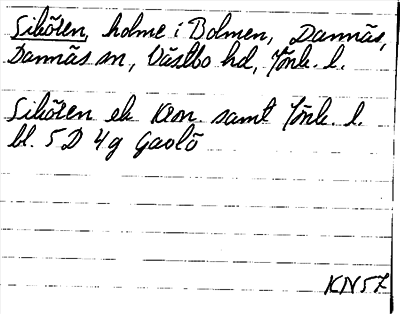 Sikölen, holme i Bolmen, Dannäs,
Dannäs sn, Västbo hd, Jönk. l.
Sikölen ek Kron. samt Jönk. l.
bl. 5D 4g Gaolö
KN57